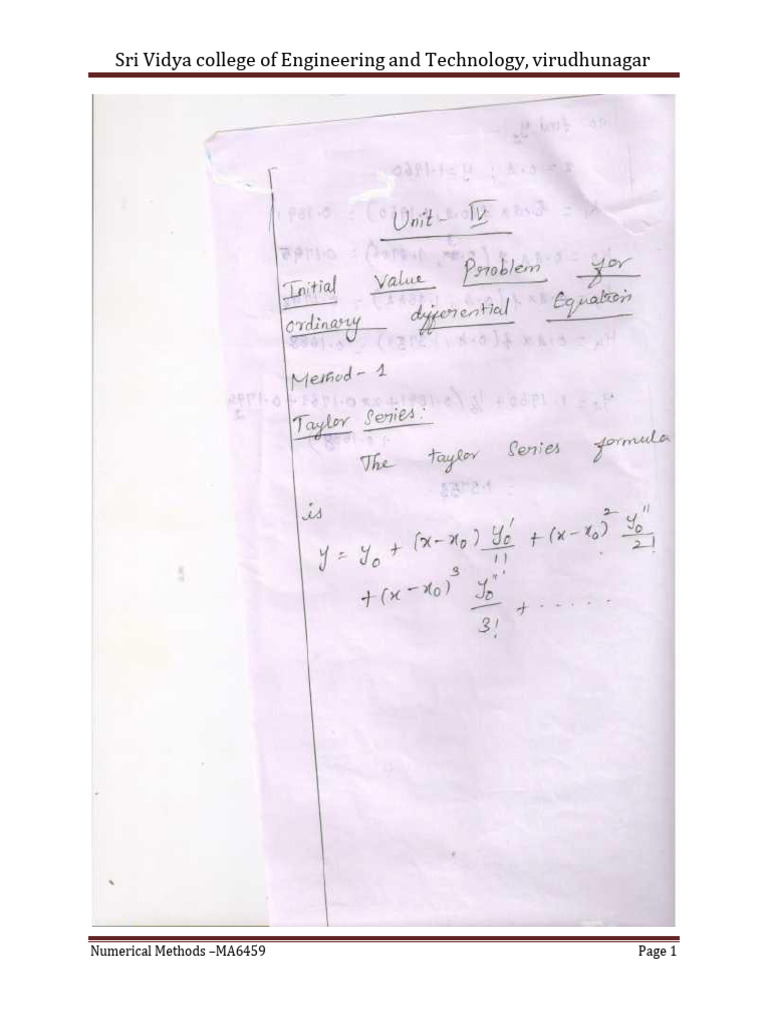 Sri Vidya college of Engineering and Technology, virudhunagar
Unit - IV
Initial Value Problem for
ordinary differential Equation
Method - 1
Taylor Series:
The taylor Series formula
is
y = y₀ + (x-x₀) y₀'/1! + (x-x₀)² y₀''/2!
+ (x-x₀)³ y₀'''/3! + ......
Numerical Methods –MA6459 Page 1